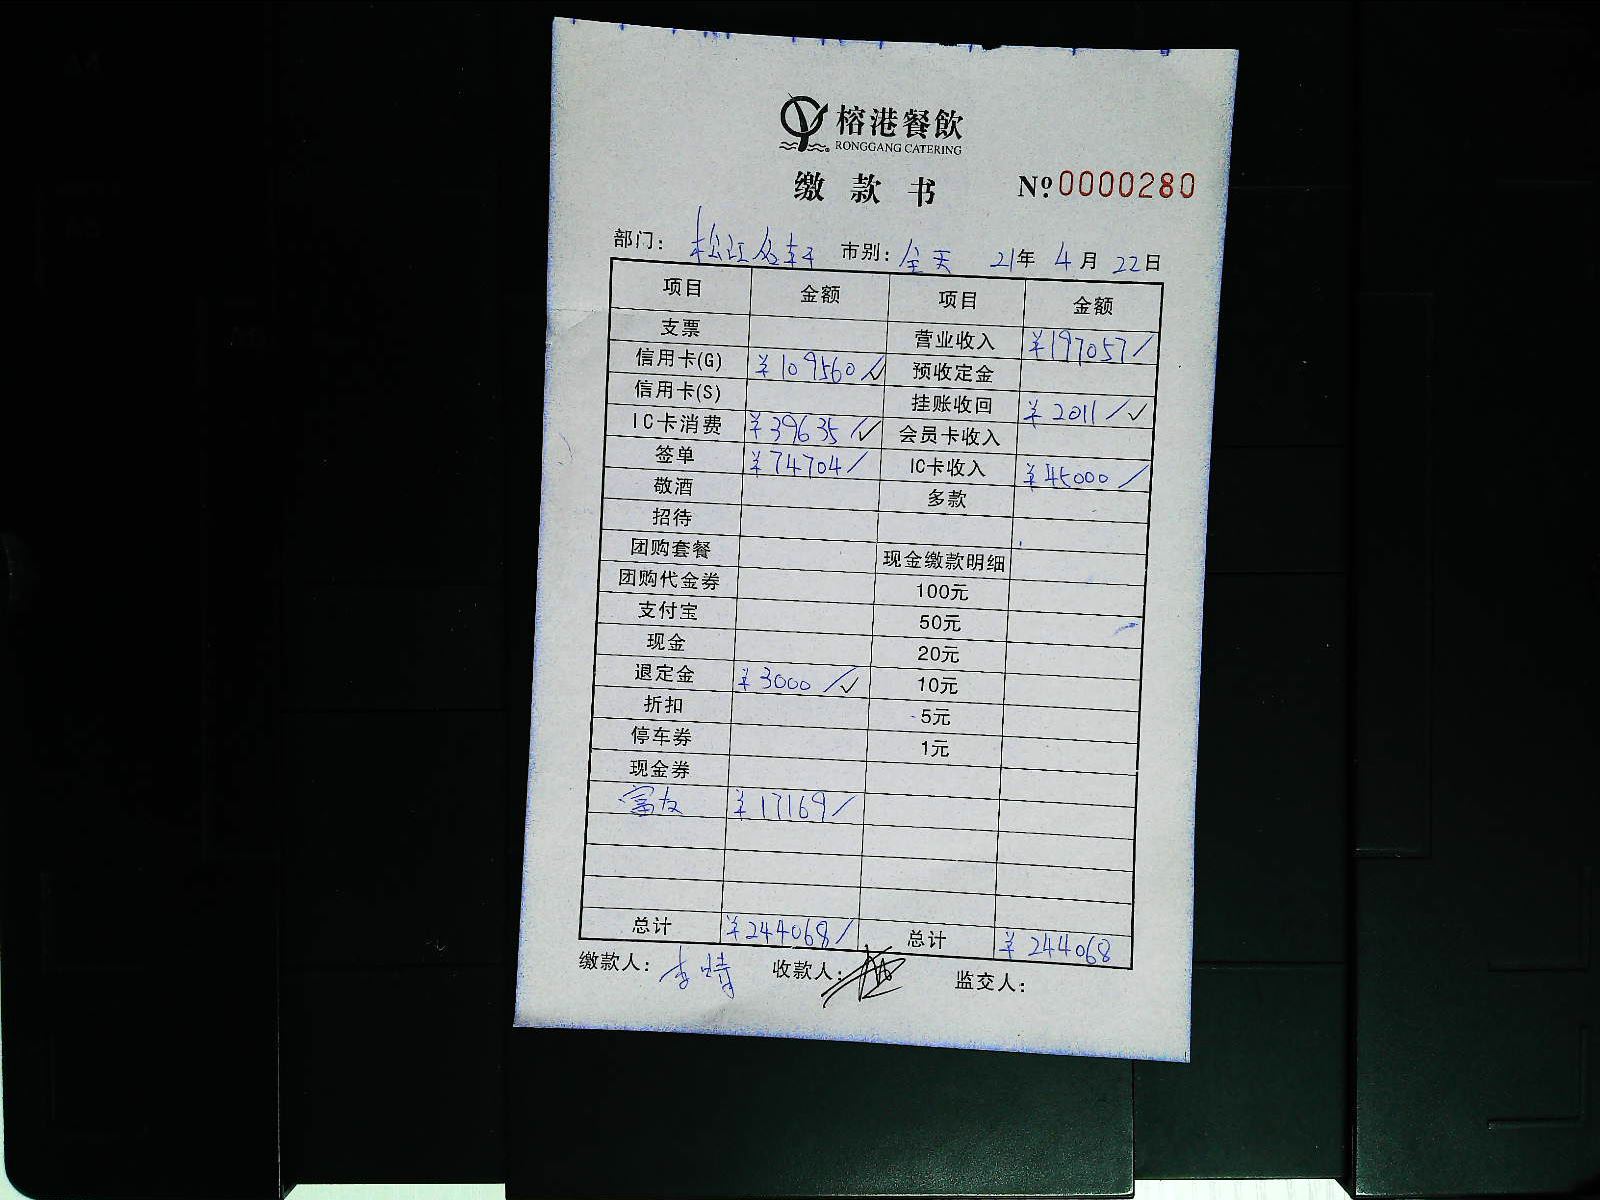 榕港餐飲
RONGGANG CATERING
缴款书 No.0000280
部门: 松江名轩 市别: 全天 21年 4月 22日
项目 金额 项目 金额
支票 营业收入 ¥197057/
信用卡(G) ¥109560/✓ 预收定金
信用卡(S) 挂账收回 ¥2011/✓
IC卡消费 ¥39635/✓ 会员卡收入
签单 ¥74704/ IC卡收入 ¥45000/
敬酒 多款
招待
团购套餐 现金缴款明细
团购代金券 100元
支付宝 50元
现金 20元
退定金 ¥3000/✓ 10元
折扣 5元
停车券 1元
现金券
富友 ¥17169/
总计 ¥244068/ 总计 ¥244068
缴款人: 李 收款人: 监交人: